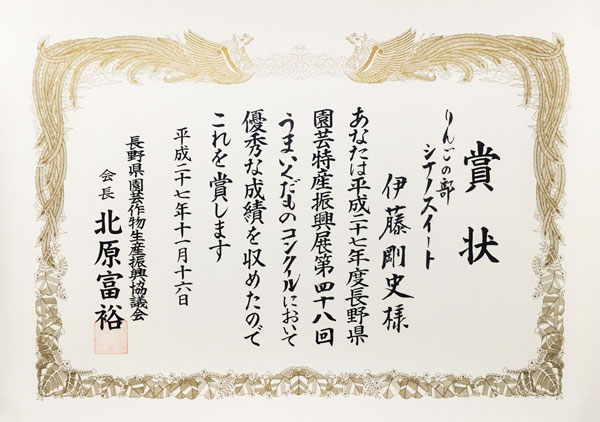 賞状
りんごの部
シナノスイート
伊藤剛史様
あなたは平成二十七年度長野県
園芸特産振興展第四十八回
うまいくだものコンクールにおいて
優秀な成績を収めたので
これを賞します
平成二十七年十一月十六日
長野県園芸作物生産振興協議会
会長 北原富裕